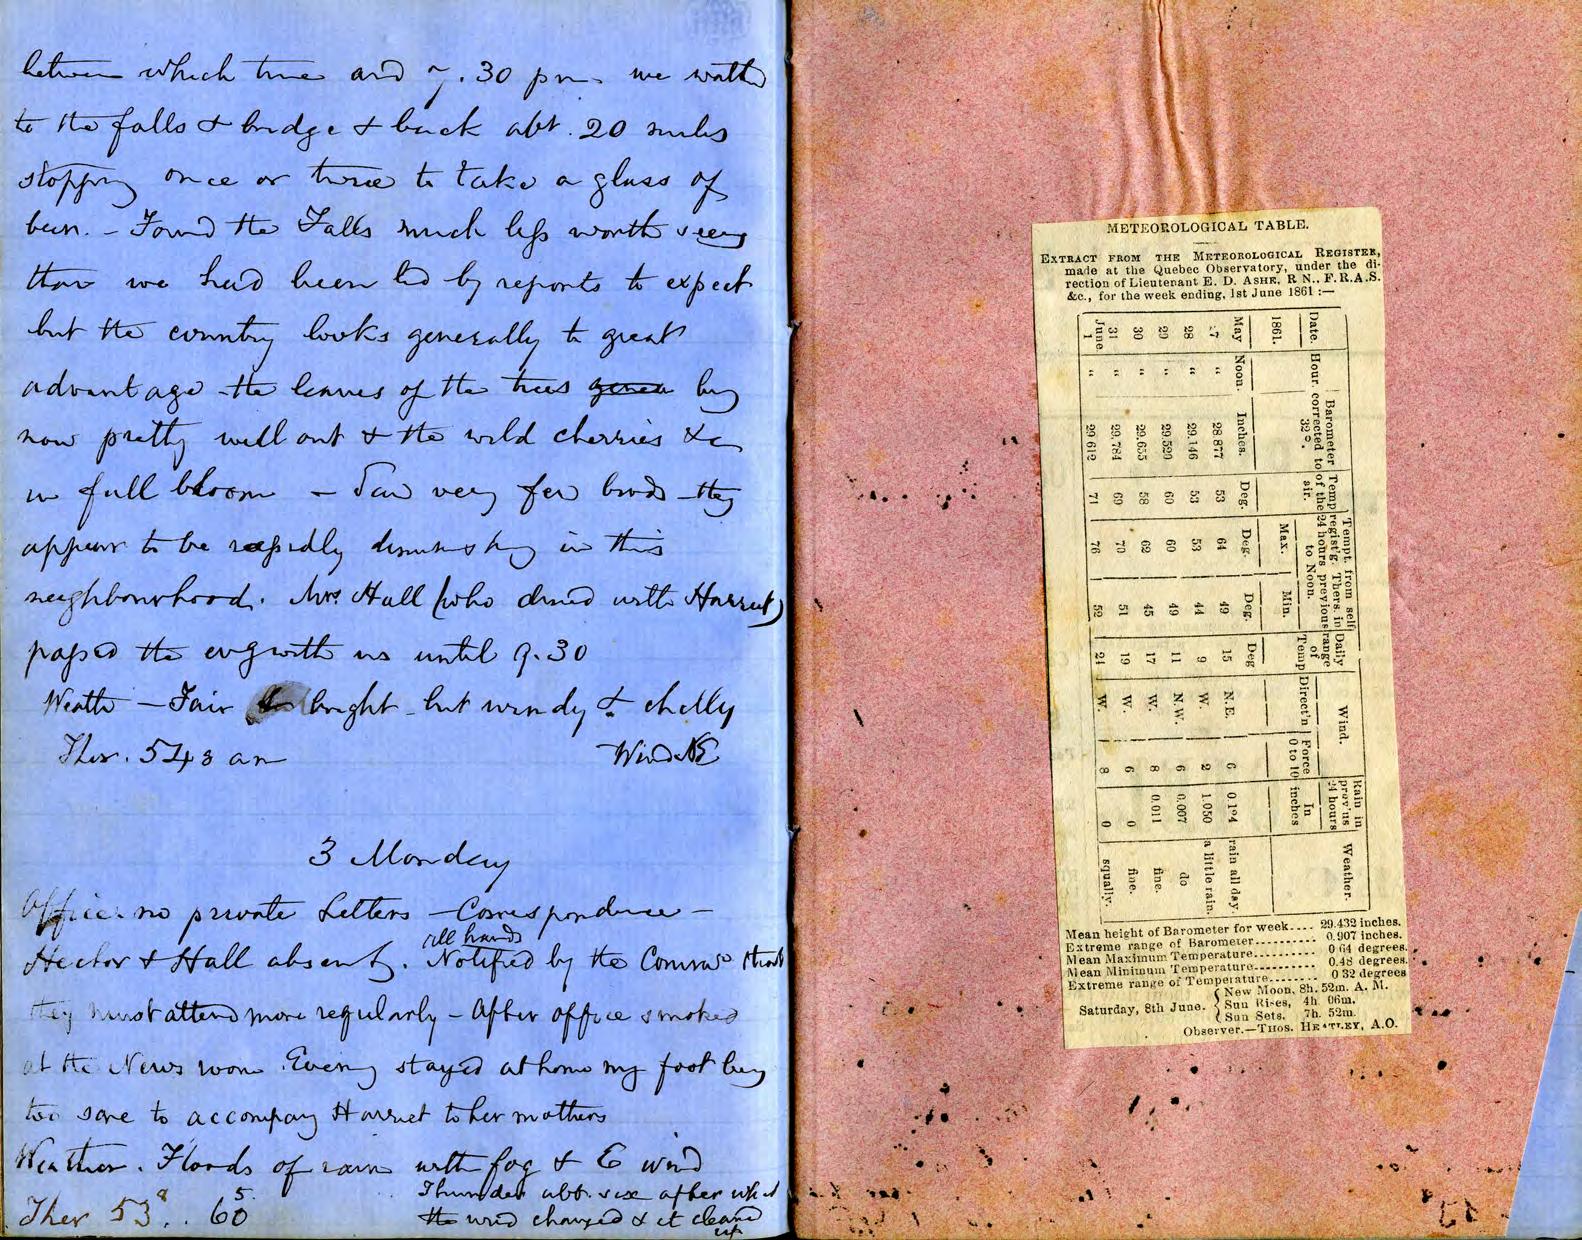 between which time and 7.30 pm we walked
to the falls & bridge & back abt. 20 miles
stopping once or twice to take a glass of
beer. – Found the Falls much less worth seeing
than we had been led by reports to expect
but the country looks generally to great
advantage the leaves of the trees being
now pretty well out & the wild cherries &c
in full bloom – Saw very few birds they
appear to be rapidly diminishing in this
neighbourhood. Mrs Hall (who dined with Harriet)
passed the evg with us until 9.30
Weath – Fair bright but windy & chilly
Ther. 54 8 am Wind NE
3 Monday
Office no private Letters – Correspondence –
Hector & Hall absent. all hands Notified by the that
they must attend more regularly – After office smoked
at the News room Evening stayed at home my foot being
too sore to accompany Harriet to her mothers
Weather. Floods of rain with fog & E wind
Ther 53 8 .. 60 5 Thunder abt. six after wh
the wind changed & it cleared
up
METEOROLOGICAL TABLE.
EXTRACT FROM THE METEOROLOGICAL REGISTER,
made at the Quebec Observatory, under the di-
rection of Lieutenant E. D. ASHE, R N., F.R.A.S.
&c., for the week ending, 1st June 1861 :—
Date. Hour. Barometer corrected to 32°. Temp of the air. Tempt. from self regist'g. Thers. in 24 hours previous to Noon. Daily range of Temp Wind. Rain in prev'us 24 hours Weather.
1861. Max. Min. Direct'n Force 0 to 10 In inches
May Noon. Inches. Deg. Deg. Deg. Deg
27 " 28 877 53 64 49 15 N.E. 6 0.194 rain all day.
28 " 29.146 53 53 44 9 W. 2 1.050 a little rain.
29 " 29.520 60 60 49 11 N.W. 6 0.007 do
30 " 29.655 58 62 45 17 W. 8 0.011 fine.
31 " 29.784 69 70 51 19 W. 6 0 fine.
June
1 " 29 612 71 76 52 24 W. 8 0 squally.
Mean height of Barometer for week.... 29.432 inches.
Extreme range of Barometer.......... 0.907 inches.
Mean Maximum Temperature.......... 0.64 degrees.
Mean Minimum Temperature.......... 0.48 degrees.
Extreme range of Temperature........ 0 32 degrees
Saturday, 8th June. { New Moon, 8h. 52m. A. M.
Sun Rises, 4h 06m.
Sun Sets, 7h. 52m.
Observer.—THOS. HEATLEY, A.O.